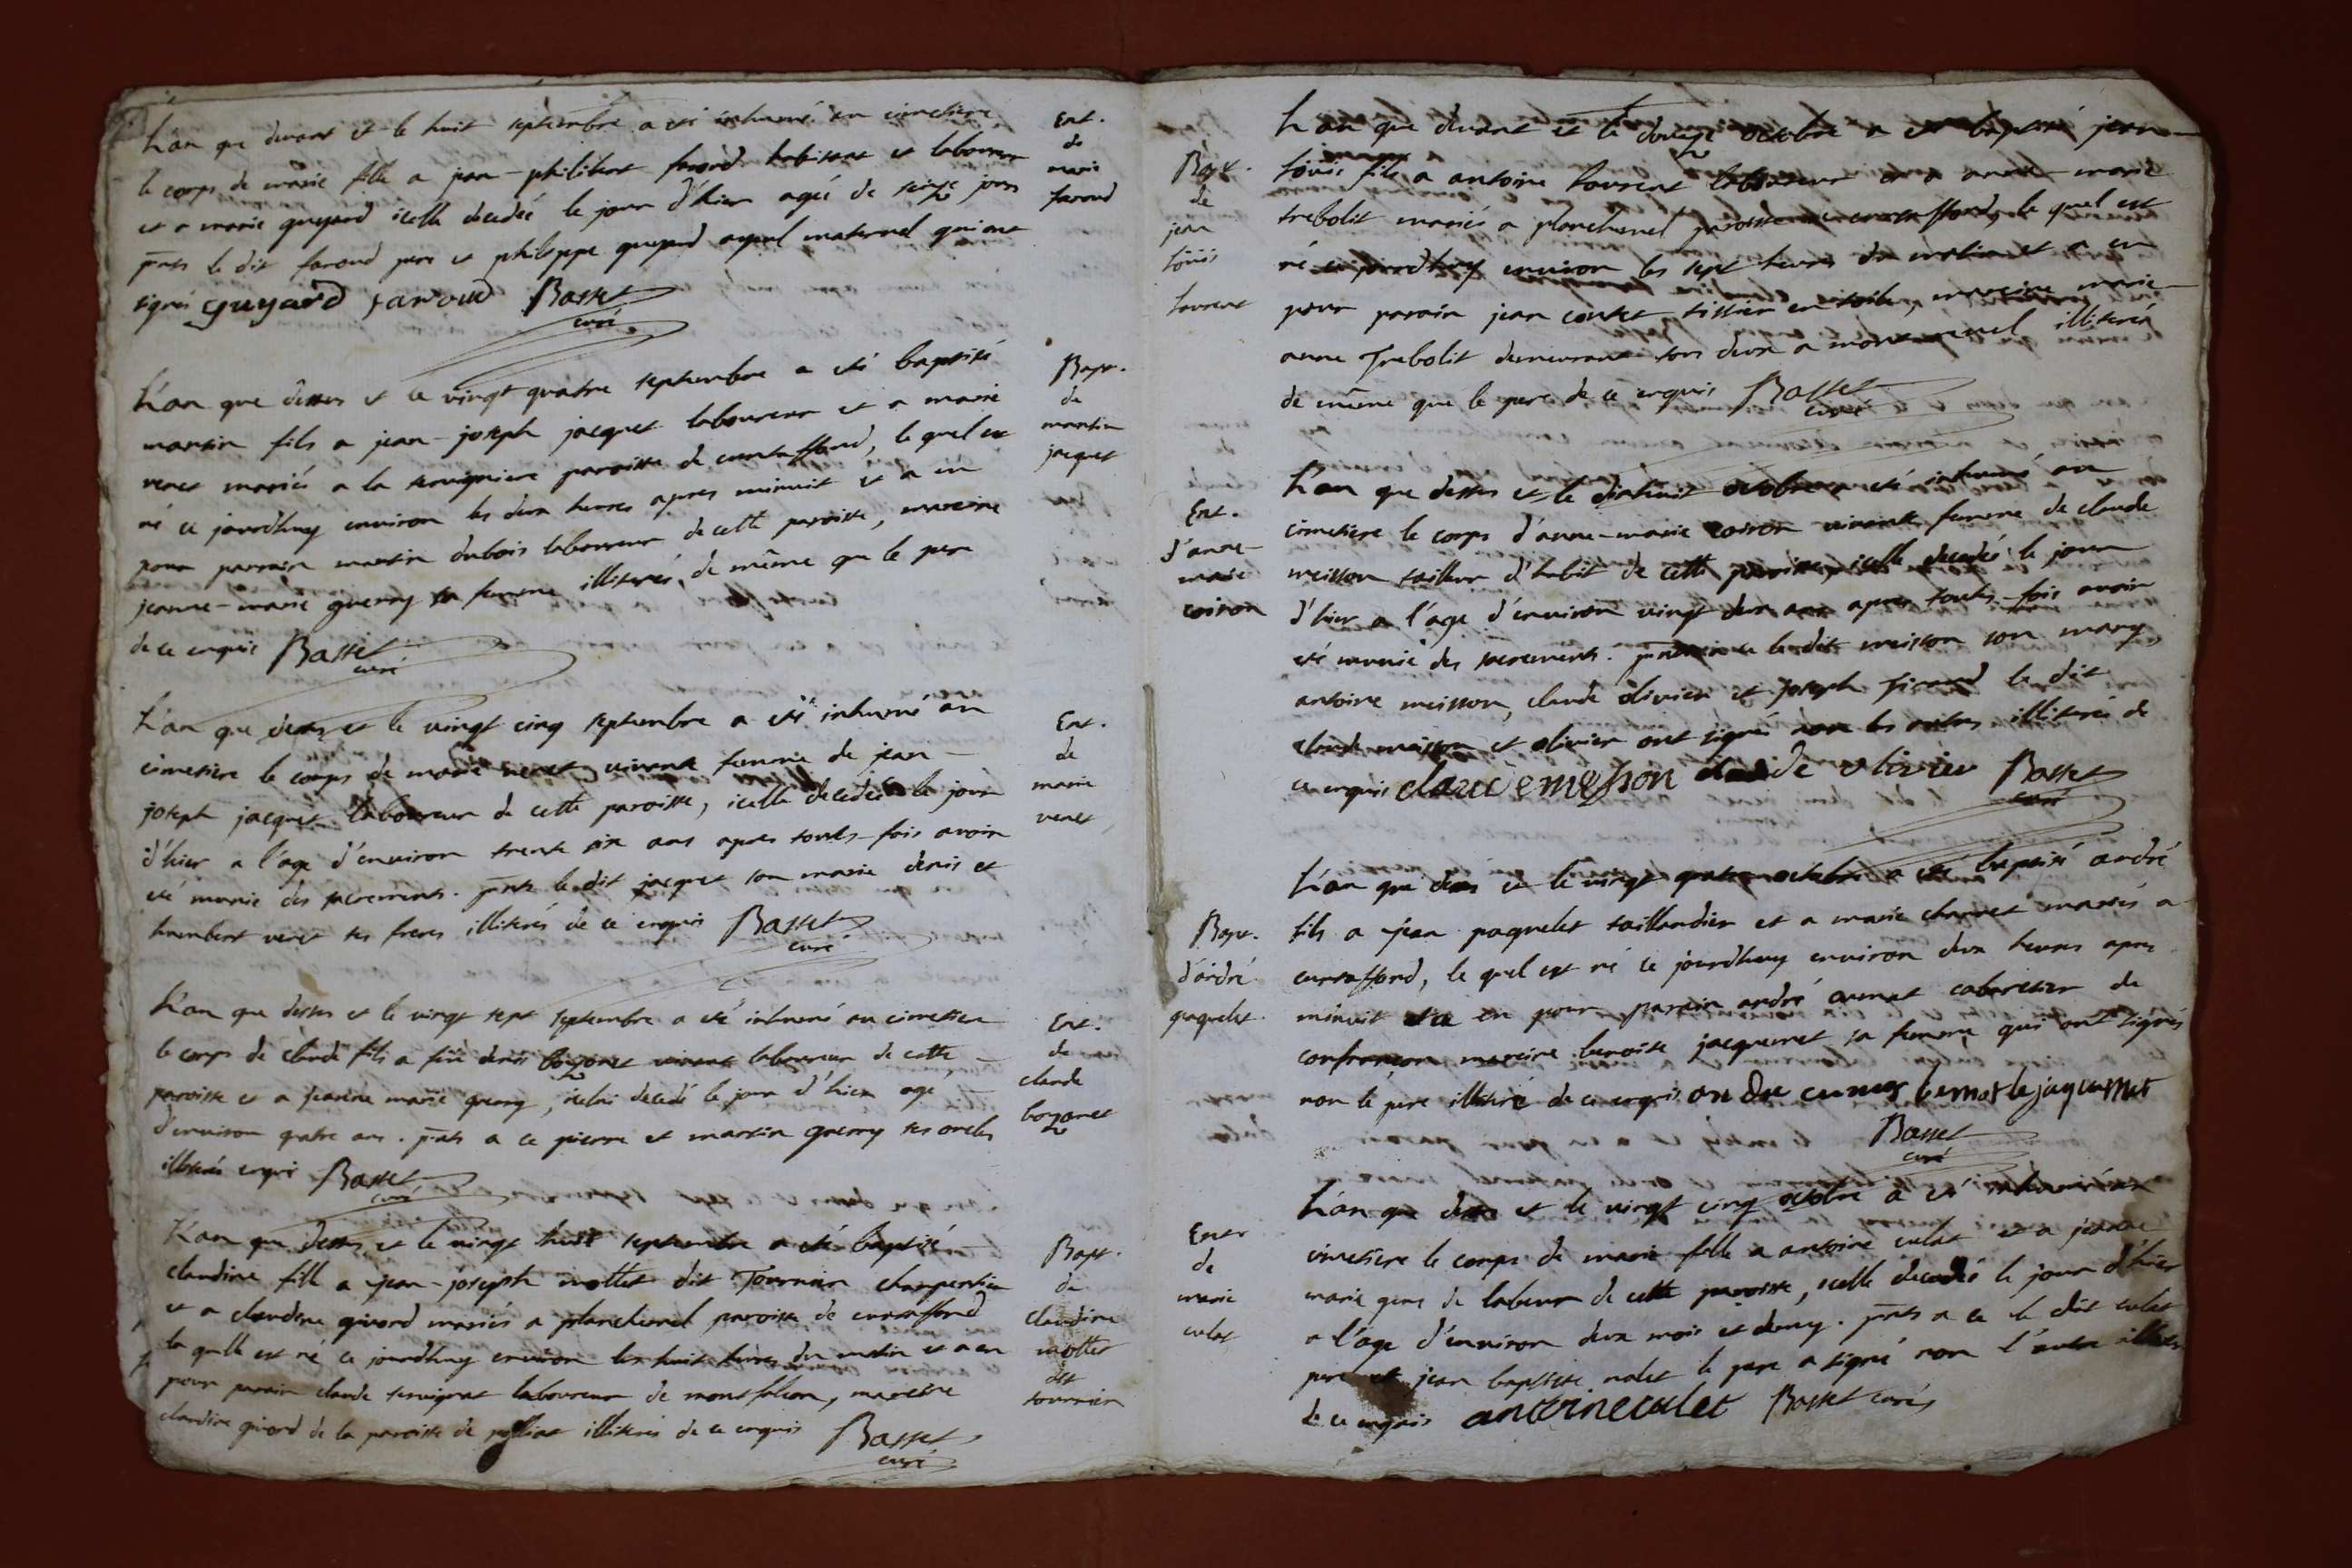 L'an que devant et le huit septembre a eté inhumé au cimetiere
le corps de marie fille a jean-philibert faroud habitant et laboureur
et a marie guyard icelle decedée le jour d'hier agée de seize jours
pnts le dit faroud pere et philippe guyard ayeul maternel qui ont
signés guyard faroud Basset
curé
Ent.
de
marie
faroud
L'an que dessus et le vingt quatre septembre a eté baptisé
martin fils a jean-joseph jacquet laboureur et a marie
venet mariés a la servigniere paroisse de curtaffond, le quel est
né ce jourdhuy environ les deux heures apres minuit et a eu
pour parrain martin dubois laboureur de cette paroisse, mareine
jeanne-marie guerry sa femme illiterés, de même que le pere
de ce enquis Basset
curé
Bapt.
de
martin
jacquet
L'an que dessus et le vingt cinq septembre a eté inhumé au
cimetiere le corps de marie venet vivante femme de jean-
joseph jacquet laboureur de cette paroisse, icelle decedée le jour
d'hier a l'age d'environ trente six ans apres toutes-fois avoir
eté munie des sacrements. pnts le dit jacquet son marie denis et
humbert venet ses freres illiterés de ce enquis Basset
curé
Ent.
de
marie
venet
L'an que dessus et le vingt sept septembre a eté inhumé au cimetiere
le corps de claude fils a feu denis bozonet vivant laboureur de cette
paroisse et a jeanne marie guerry, icelui decedé le jour d'hier agé
d'environ quatre ans. pnts a ce pierre et martin guerry ses oncles
illiterés enquis Basset
curé
Ent.
de
claude
bozonet
L'an que dessus et le vingt huit septembre a eté baptisé
claudine fille a jean-joseph mottet dit Tournier charpentier
et a claudine givord mariés a planchenel paroisse de curtaffond
la quelle est né ce jourdhuy environ les huit heures du matin et a eu
pour parain claude servignat laboureur de montfalcon, mareine
claudine givord de la paroisse de polliat illiterés de ce enquis Basset
curé
Bapt.
de
claudine
mottet
dit
tournier
L'an que devant et le douze octobre a eté baptisé jean-
Bapt.
de
jean
loüis
laurent
loüis fils a antoine laurent laboureur et a anne-marie
trebolit mariés a planchenel paroisse de curtaffond, le quel est
né ce jourdhuy environ les sept heures du matin et a eu
pour parain jean contet tissier en toile, mareine marie-
anne Trebolit demeurant tous deux a montrevel illiterés
de même que le pere de ce enquis Basset
curé
Ent.
d'anne-
marie
coiron
L'an que dessus et le dixhuit octobre a eté inhumé au
cimetiere le corps d'anne-marie coiron vivante femme de claude
meisson tailleur d'habit de cette paroisse, icelle decedée le jour
d'hier a l'age d'environ vingt deux ans apres toutes-fois avoir
eté munie des sacrements. pnts a ce le dit meisson son mary,
antoine meisson, claude olivier et joseph le dit
claude meisson et olivier ont signés non les autres illiterés de
ce enquis claude messon claude olivier Basset
curé
Bapt.
d'andré
paquelet.
L'an que dessus et le vingt quatre octobre a eté baptisé andré
fils a jean paquelet taillandier et a marie charvet mariés a
curtaffond, le quel est né ce jourdhuy environ deux heures apres
minuit et a eu pour parain andré cabaretier de
confrançon mareine benoite jacquemet sa femme qui ont signés
non le pere illiteré de ce enquis
Basset
curé
Entr
de
marie
culet
L'an que dessus et le vingt cinq octobre a eté inhumé au
cimetiere le corps de marie fille a antoine culet et a jeanne
marie gens de labeur de cette paroisse, icelle decedée le jour d'hier
a l'age d'environ deux mois et demy. pnts a ce le dit culet
pere et jean baptiste nalet le pere a signé non l'autre illiteré
de ce enquis antoine culet Basset curé